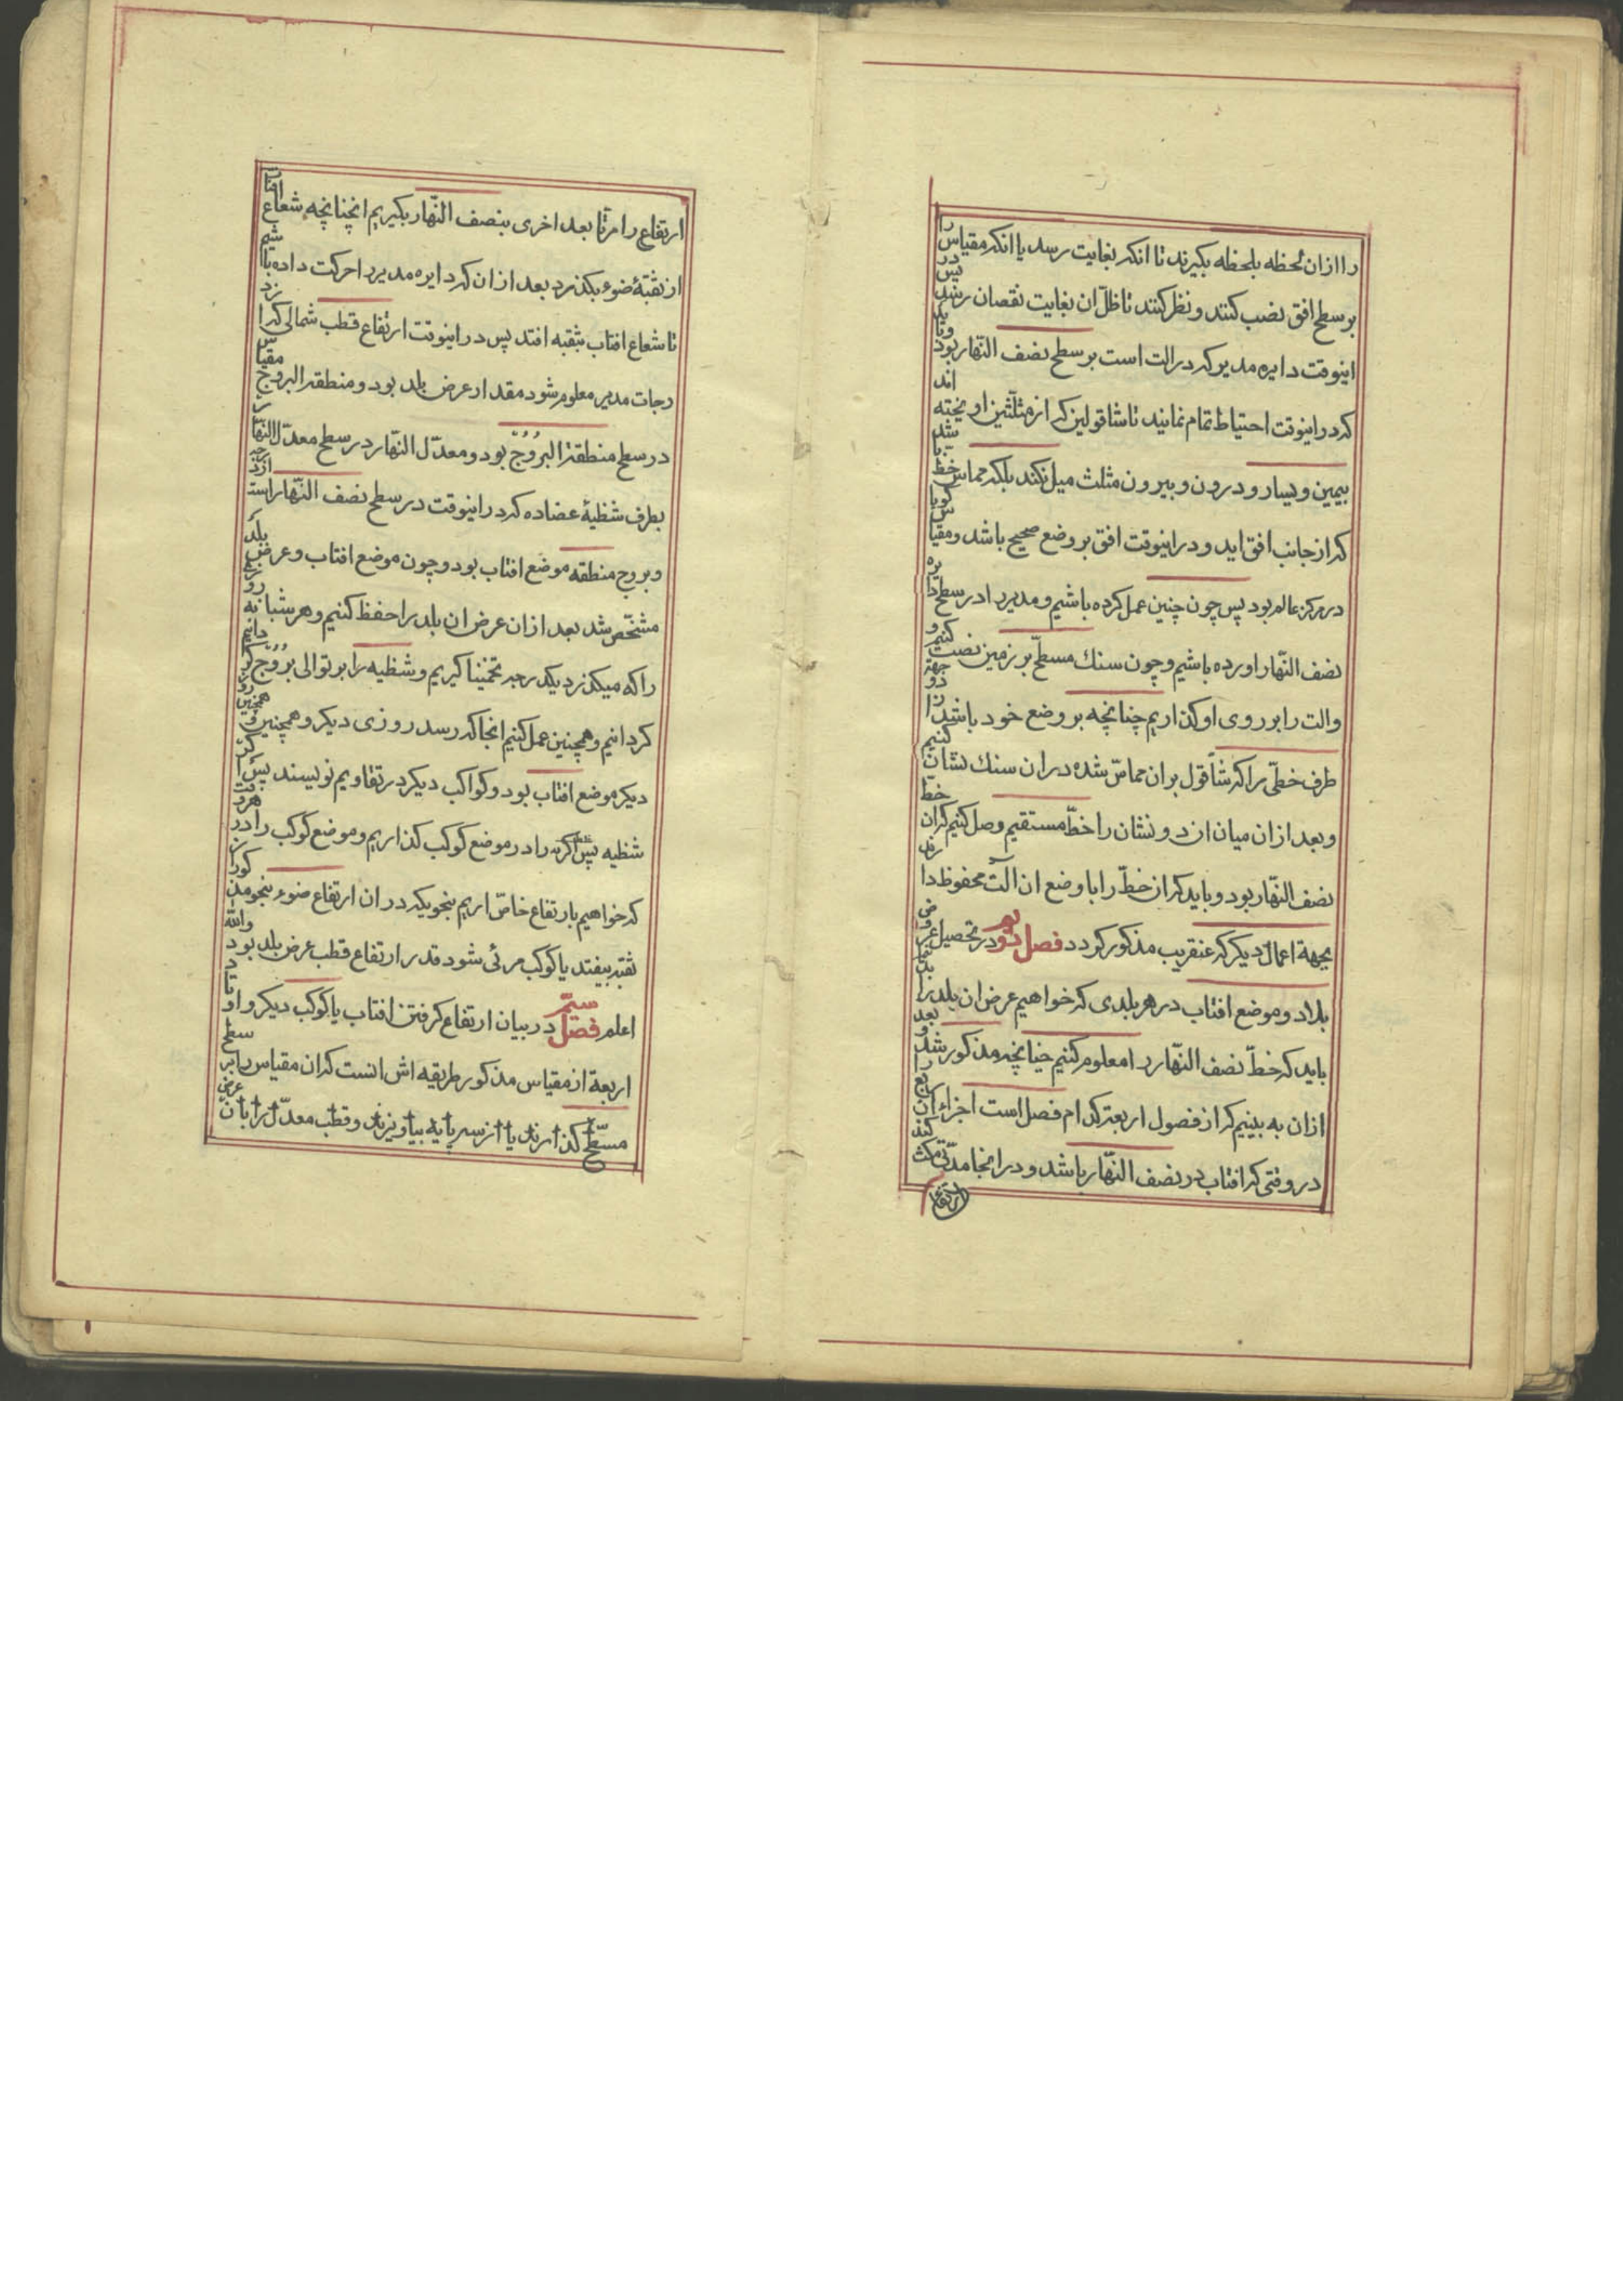 را ازان لحظه بلحظه بکیرند تا انکه بغایت رسد یا انکه مقیاس را
بر سطح افق نصب کنند و نظر کنند تا ظلّ ان بغایت نقصان رسد پس در
اینوقت دایره مدیر که در الت است بر سطح نصف النّهار بود و باید
که در اینوقت احتیاط تمام نمایند تا شاقولین که از مثلّثین اویخته اند
بیمین و یسار و درون و بیرون مثلث میل نکند بلکه مماس خط باشد
که از جانب افق اید و در اینوقت افق بر وضع صحیح باشد و مقیاس کویا
در مرکز عالم بود پس چون چنین عمل کرده باشیم و مدیر را در سطح دایره
نصف النّهار اورده باشیم و چون سنك مسطّح بر زمین نصب کنیم و
والت را بر روی او کذاریم چنانچه بر وضع خود باشد از دو جهة
طرف خطّی را که شاقول بران مماسّ شده دران سنك نشان کنیم
و بعد ازان میان ان دو نشان را خطّ مستقیم وصل کنیم که ان خطّ
نصف النّهار بود و باید که ان خطّ را با وضع ان الت محفوظ دارند
بجهة اعمال دیکر که عنقریب مذکور کردد فصل دوم در تحصیل عرض
بلاد و موضع افتاب در هر بلدی که خواهیم عرض ان بلد را بدانیم
باید که خطّ نصف النّهار را معلوم کنیم چنانچه مذکور شد و بعد
ازان به بینیم که از فصول اربعه کدام فصل است اجزاء ان ربع را
در وقتی که افتاب در نصف النّهار باشد و در انجا مدّتی مکث کند
ارتفاع
ارتفاع را مرّتا بعد اخری بنصف النّهار بکیریم انچنانچه شعاع افتاب
از ثقبهٔ ضوء بکذرد بعد ازان که دایره مدیر را حرکت داده باشیم
تا شعاع افتاب بثقبه افتد پس در اینوقت ارتفاع قطب شمالی که از
درجات مدیر معلوم شود مقدار عرض بلد بود و منطقة البروج مقیاس
در سطح منطقة البروج بود و معدّل النّهار در سطح معدّل النّهار
بطرف شظیهٔ عضاده که در اینوقت در سطح نصف النّهار است از درجه
و بروج منطقه موضع افتاب بود و چون موضع افتاب و عرض بلد
مشخّص شد بعد ازان عرض ان بلد را حفظ کنیم و هر شبانه روز
را که میکذرد یکدرجه تخمینا کیریم و شظیه را بر توالی بروج
کردانیم و همچنین عمل کنیم انجا که رسد روزی دیکر و همچنین
دیکر موضع افتاب بود و کواکب دیکر در تقاویم نویسند پس اکر
شظیه را در موضع کوکب کذاریم و موضع کوکب را در هر وقت
که خواهیم بارتفاع خاصّ اریم بنحویکه دران ارتفاع ضوء بنحو مذکور از
ثقبه بیفتد یا کوکب مرئی شود قدر ارتفاع قطب عرض بلد بود والله
اعلم فصل سیّم در بیان ارتفاع کرفتن افتاب یا کوکب دیکر و اوتاد
اربعة از مقیاس مذکور طریقه اش انست که ان مقیاس را بر سطح
مسطّح کذارند یا از سه پایه بیاویزند و قطب معدّل را بان عرض